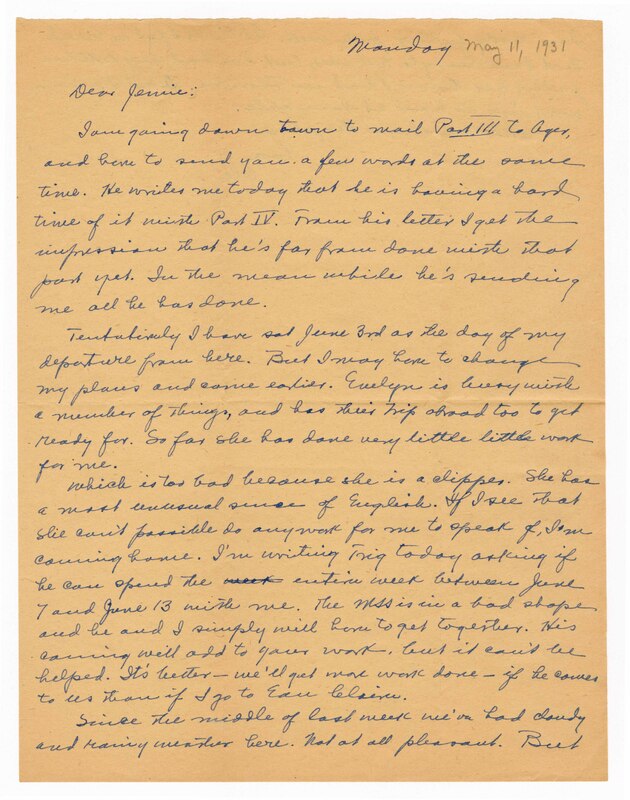 Monday May 11, 1931
Dear Jennie:
I am going down town to mail Part III to Ager,
and have to send you a few words at the same
time. He writes me today that he is having a hard
time of it with Part IV. From his letter I get the
impression that he's far from done with that
part yet. In the mean while he's sending
me all he has done.
Tentatively I have set June 3rd as the day of my
departure from here. But I may have to change
my plans and come earlier. Evelyn is busy with
a number of things, and has their trip abroad too to get
ready for. So far she has done very little little work
for me.
Which is too bad because she is a clipper. She has
a most unusual sense of English. If I see that
she can't possible do any work for me to speak of, I'm
coming home. I'm writing Trig today asking if
he can spend the week entire week between June
7 and June 13 with me. The MSS is in a bad shape
and he and I simply will have to get together. His
coming will add to your work, but it can't be
helped. It's better – we'll get more work done – if he comes
to us than if I go to Eau Claire.
Since the middle of last week we've had cloudy
and rainy weather here. Not at all pleasant. But